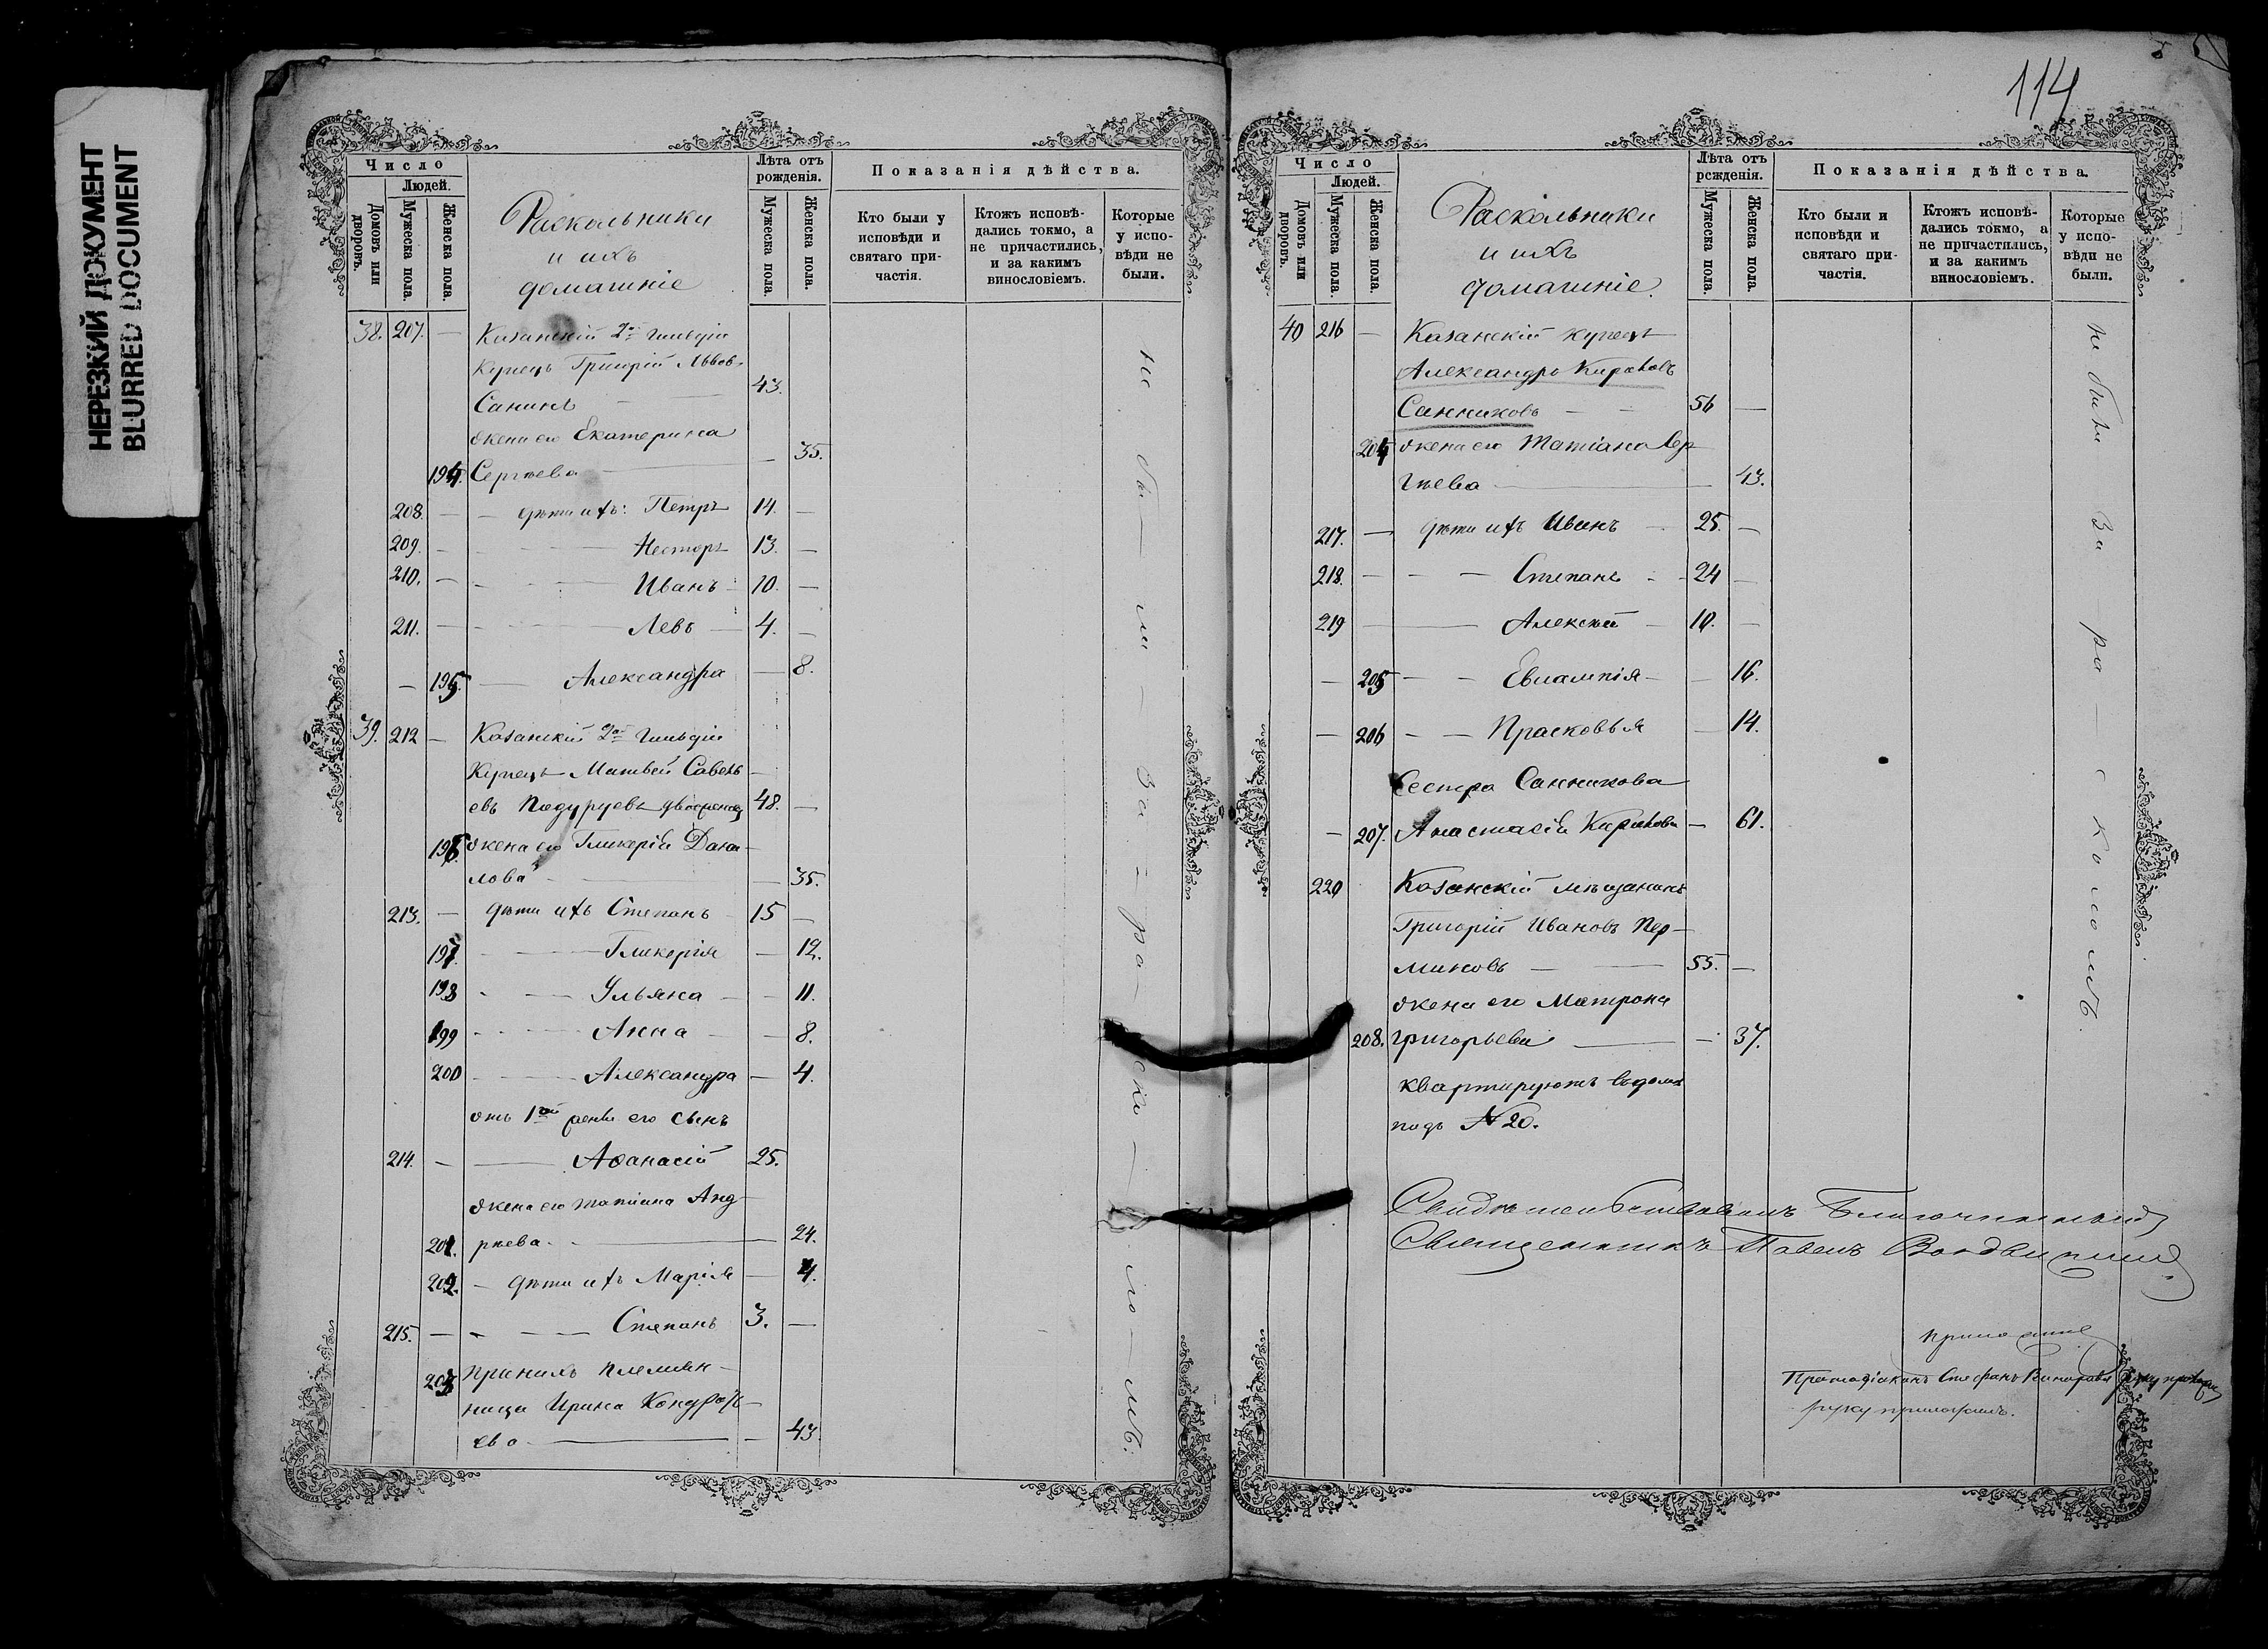 НЕРЕЗКИЙ ДОКУМЕНТ
BLURRED DOCUMENT
Число
Людей.
Домовъ или дворовъ.
Мужеска пола.
Женска пола.
Раскольники
и ихъ
домашніе
Лѣта отъ рожденія.
Мужеска пола.
Женска пола.
Показанія дѣйства.
Кто были у исповѣди и святаго причастія.
Ктожъ исповѣдались токмо, а не причастились, и за какимъ винословіемъ.
Которые у исповѣди не были.
38. 207. — Казанскій 2й гильдіи
купецъ Григорій Львов-
Санинъ — 43.
жена его Екатерина
194. Сергѣева — 35.
208. — дѣти ихъ: Петръ 14. —
209. — Несторъ 13. —
210. — Иванъ 10. —
211. — Левъ 4. —
— 195. — Александра — 8.
39. 212 — Казанскій 2й гильдіи
Купецъ Матвей Савель-
евъ 48. —
196. жена его Гликерія Дани-
лова — 35.
213. — дѣти ихъ Степанъ 15 —
197. — Гликерія — 12.
198 — Ульяна — 11.
199 — Анна — 8.
200 — Александра — 4.
отъ 1й жены его сынъ
214. — Афанасій 25.
жена его Татіана Анд-
201. рѣева — 24.
202. — дѣти ихъ Марія — 4.
215. — Степанъ 3. —
203 племян-
ница Ирина Кондрать-
ева — 43
не бы — ли — За — ра — ско — ломъ.
114
Число
Людей.
Домовъ или дворовъ.
Мужеска пола.
Женска пола.
Раскольники
и ихъ
домашніе.
Лѣта отъ рожденія.
Мужеска пола.
Женска пола.
Показанія дѣйства.
Кто были и исповѣди и святаго причастія.
Ктожъ исповѣдались токмо, а не причастились, и за какимъ винословіемъ.
Которые у исповѣди не были.
40 216 — Казанскій купецъ
Александръ Кириловъ
Санниковъ — 56 —
204 жена его Татіана Сер-
гѣева — 43.
217. — дѣти ихъ Иванъ — 25. —
218. — Степанъ — 24 —
219 — Алексѣй — 10. —
— 205 — Евлампія — 16.
— 206 — Прасковья — 14.
Сестра Санникова
— 207. Анастасія Кирилова — 61.
220 Казанскій мѣщанинъ
Григорій Ивановъ Пер-
миновъ — 55. —
жена его Матрона
208. Григорьева — 37.
квартируютъ въ домѣ
подъ № 20.
не были За ра — сколомъ.
Свидѣтельствовалъ Благочинный
Священникъ Павелъ
Протодіаконъ Стефанъ
руку приложилъ.